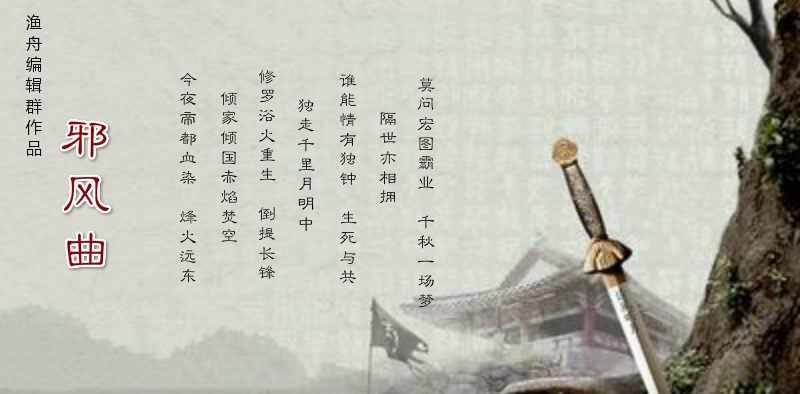 渔舟编辑群作品
邪风曲
今夜帝都血染 烽火远东
倾家倾国赤焰焚空
修罗浴火重生 倒提长锋
独走千里月明中
谁能情有独钟 生死与共
隔世亦相拥
莫问宏图霸业 千秋一场梦